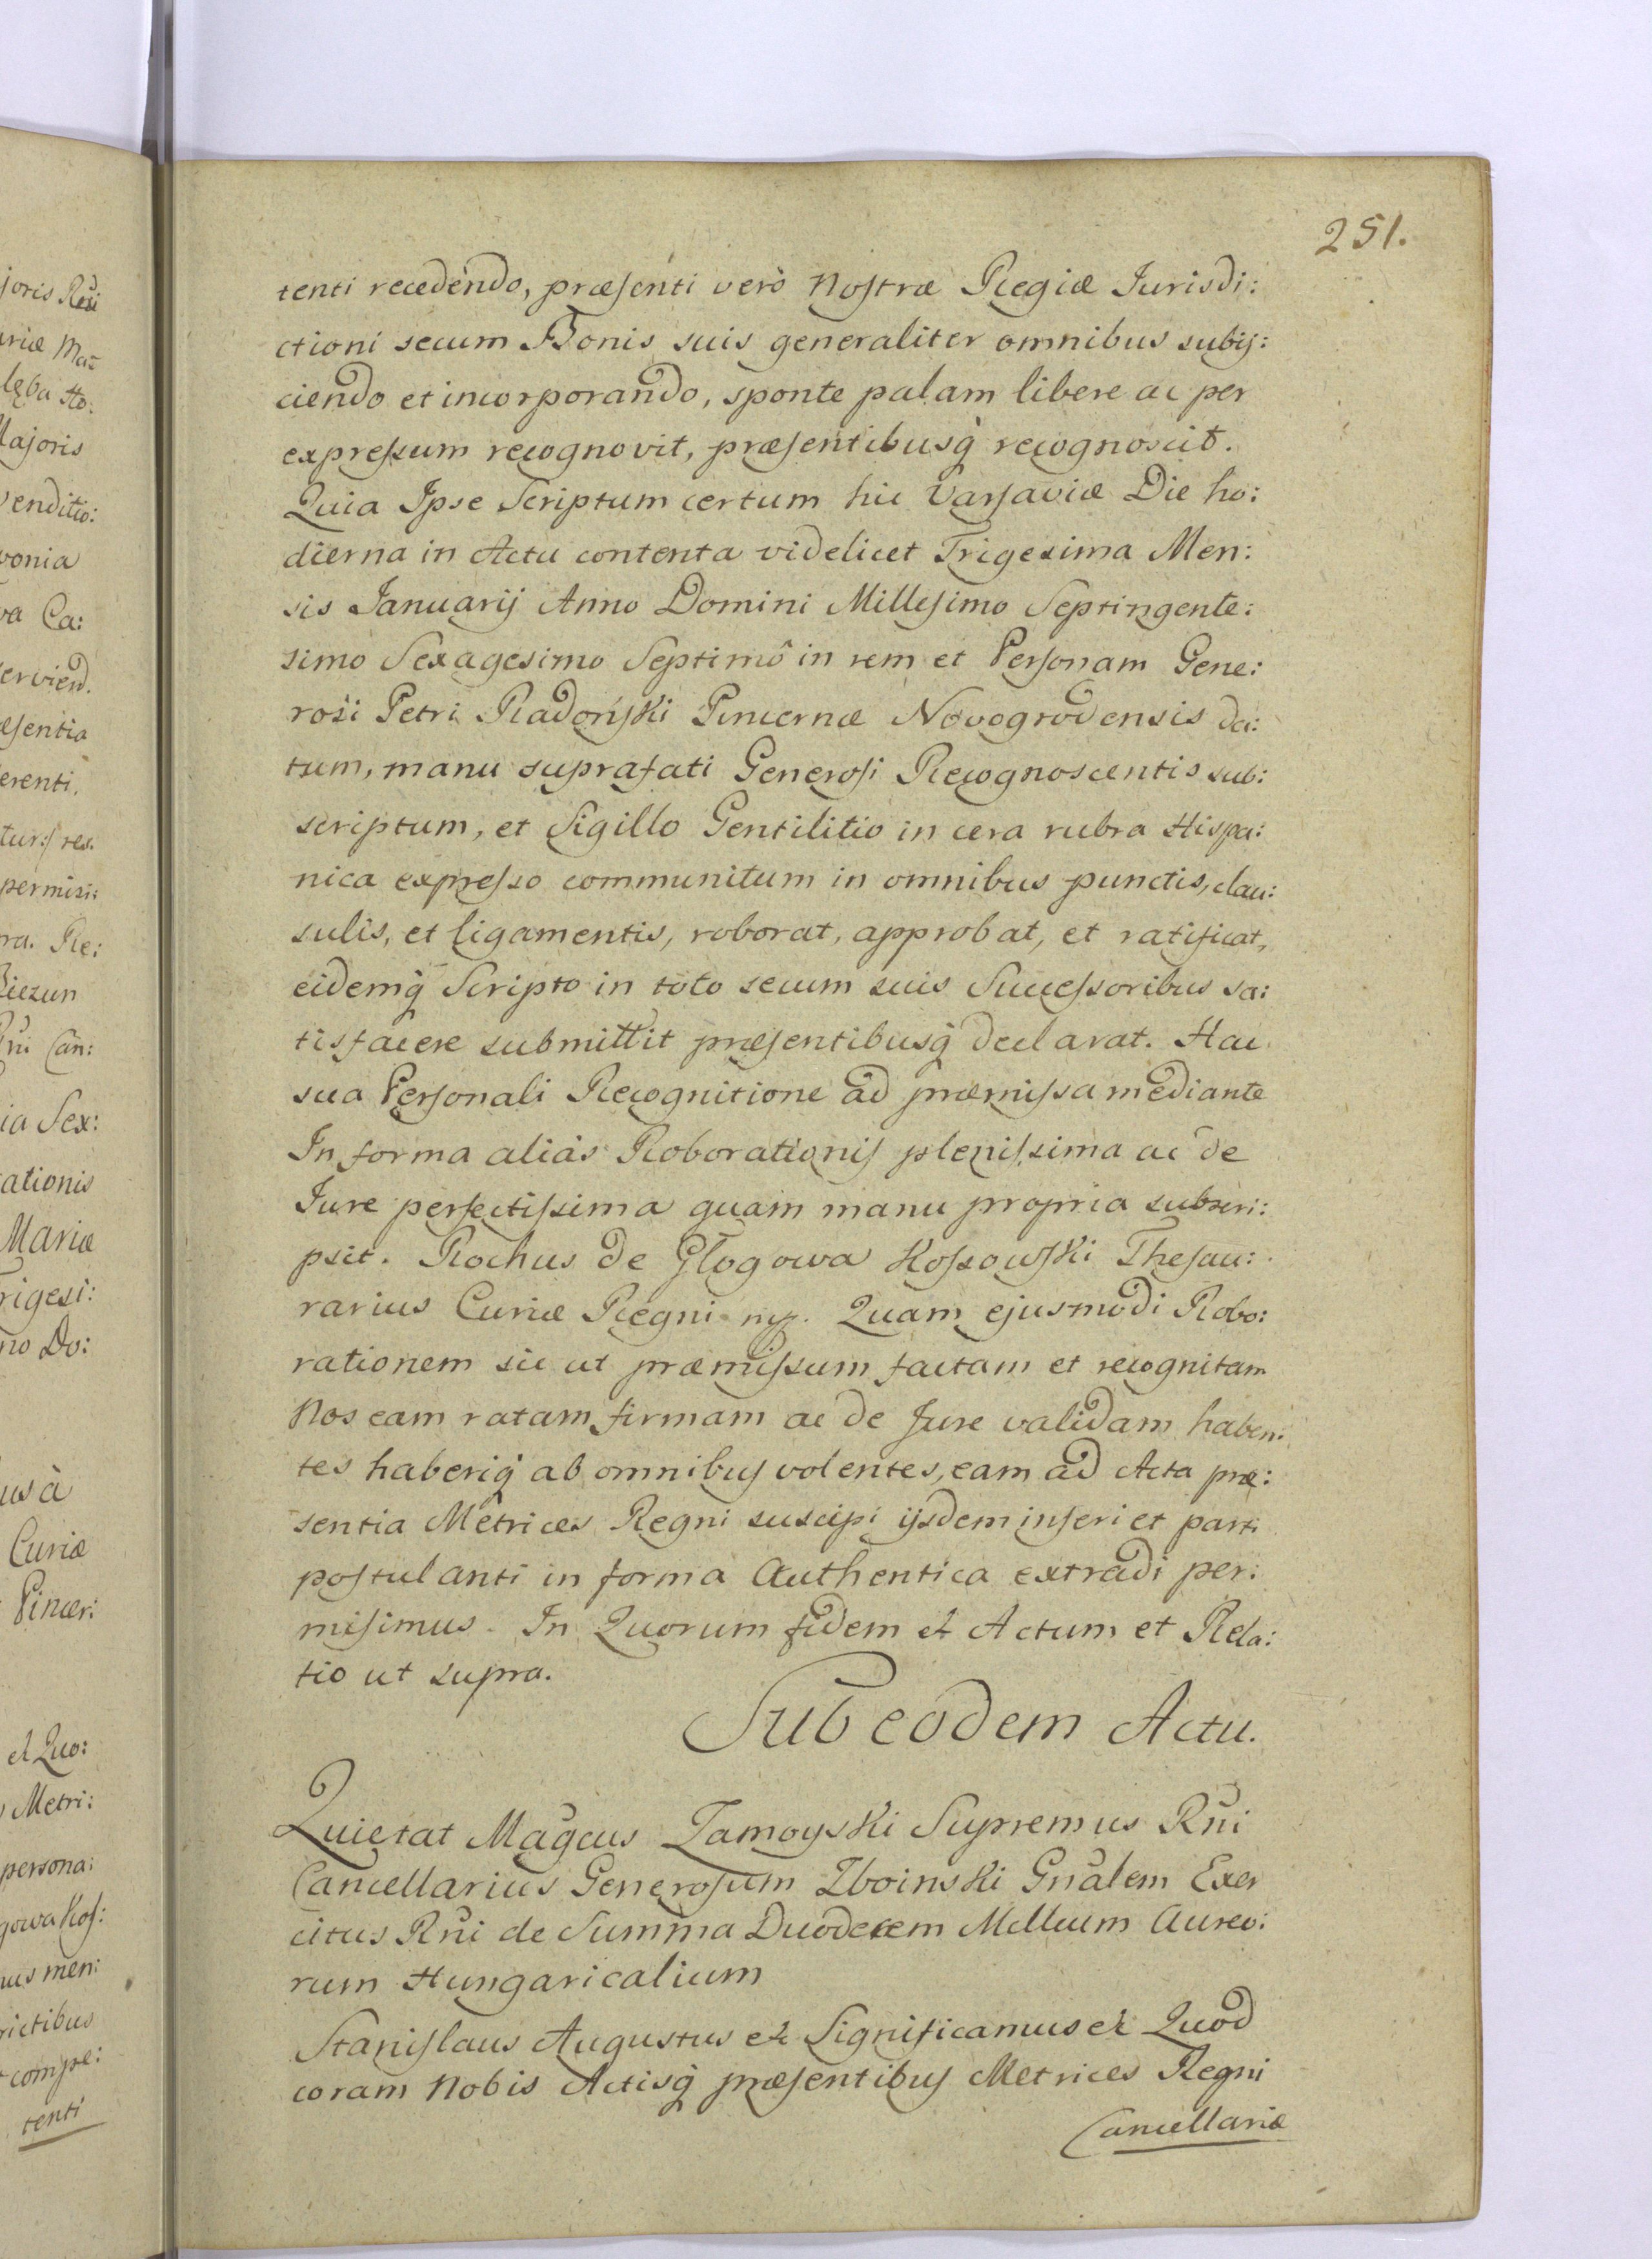 251.
tenti recedendo, præsenti verò Nostræ Regiæ Jurisdi:
ctioni secum Bonis suis generaliter omnibus subij:
ciendo et incorporando, sponte palam libere ac per
expressum recognovit, præsentibusq̀ recognoscit.
Quia Ipse Scriptum certum hic Varsaviæ Die ho:
dierna in Actu contenta videlicet Trigesima Men:
sis Januarij Anno Domini Millesimo Septingente:
simo Sexagesimo Septimô in rem et Personam Gene:
rosi Petri Radoński Pincernæ Novogrodensis da:
tum, manu suprafati Generosi Recognoscentis sub:
scriptum, et Sigillo Gentilitio in cera rubra Hispa:
nica expresso communitum in omnibus punctis, clau:
sulis, et ligamentis, roborat, approbat, et ratificat,
eidemq̀ Scripto in toto secum suis Successoribus sa:
tisfacere submittit præsentibusq̀ declarat. Hac
sua Personali Recognitione ad præmissa mediante
In forma aliàs Roborationis plenissima ac de
Jure perfectissima quam manu propria subscri:
psit. Rochus de Głogowa Kossowski Thesau:
rarius Curiæ Regni mp. Quam ejusmodi Robo:
rationem sic ut præmissum factam et recognitam
Nos eam ratam firmam ac de Jure validam haben:
tes haberiq̀ ab omnibus volentes, eam ad Acta præ:
sentia Metrices Regni suscipi ijsdem inseri et parti
postulanti in forma Authentica extradi per:
misimus. In Quorum fidem et Actum et Rela:
tio ut supra.
Sub eodem Actu.
Quietat Magcus Zamoyski Supremus Rni
Cancellarius Generosum Zboinski Gnalem Exer
citus Rni de Summa Duodecem Millium Aureo:
rum Hungaricalium
Stanislaus Augustus et Significamus et Quod
coram Nobis Actisq̀ præsentibus Metrices Regni
Cancellariæ
joris Rni
Majoris
venditio:
vonia
va Ca:
ervien̄d.
æsentia
erenti.
permisi:
ra. Re:
Biezun
Rni Can:
ia Sex:
rationis
Mariæ
Trigesi:
no Do:
us à
Curiæ
Pincer:
et Quo:
Metri:
persona:
gowa Kos:
us men:
rictibus
compe:
tenti